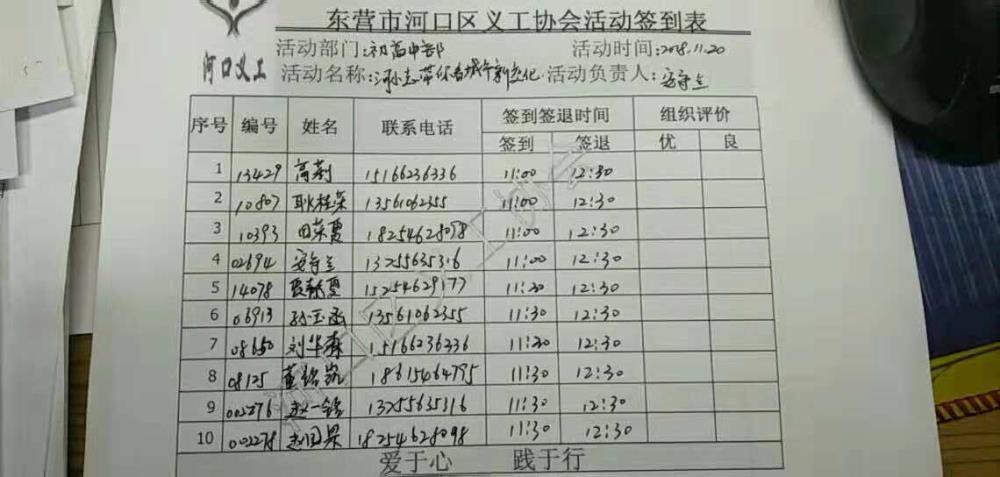 东营市河口区义工协会活动签到表
活动部门:初高中部 活动时间:2018.11.20
河口义工
活动名称: 活动负责人:安守兰
序号 编号 姓名 联系电话 签到签退时间 组织评价
签到 签退 优 良
1 13429 高莉 15166236336 11:00 12:30
2 10807 耿桂英 13561062355 11:00 12:30
3 10393 田荣霞 18254628098 11:00 12:30
4 02694 安守兰 13255635316 11:00 12:30
5 14078 15254629177 11:30 12:30
6 06913 孙玉函 13561062355 11:30 12:30
7 08650 刘华森 15166236336 11:30 12:30
8 08125 董铭凯 18615464795 11:30 12:30
9 002276 赵一铭 13255635316 11:30 12:30
10 002278 18254628098 11:30 12:30
爱于心 践于行
河口区义工协会